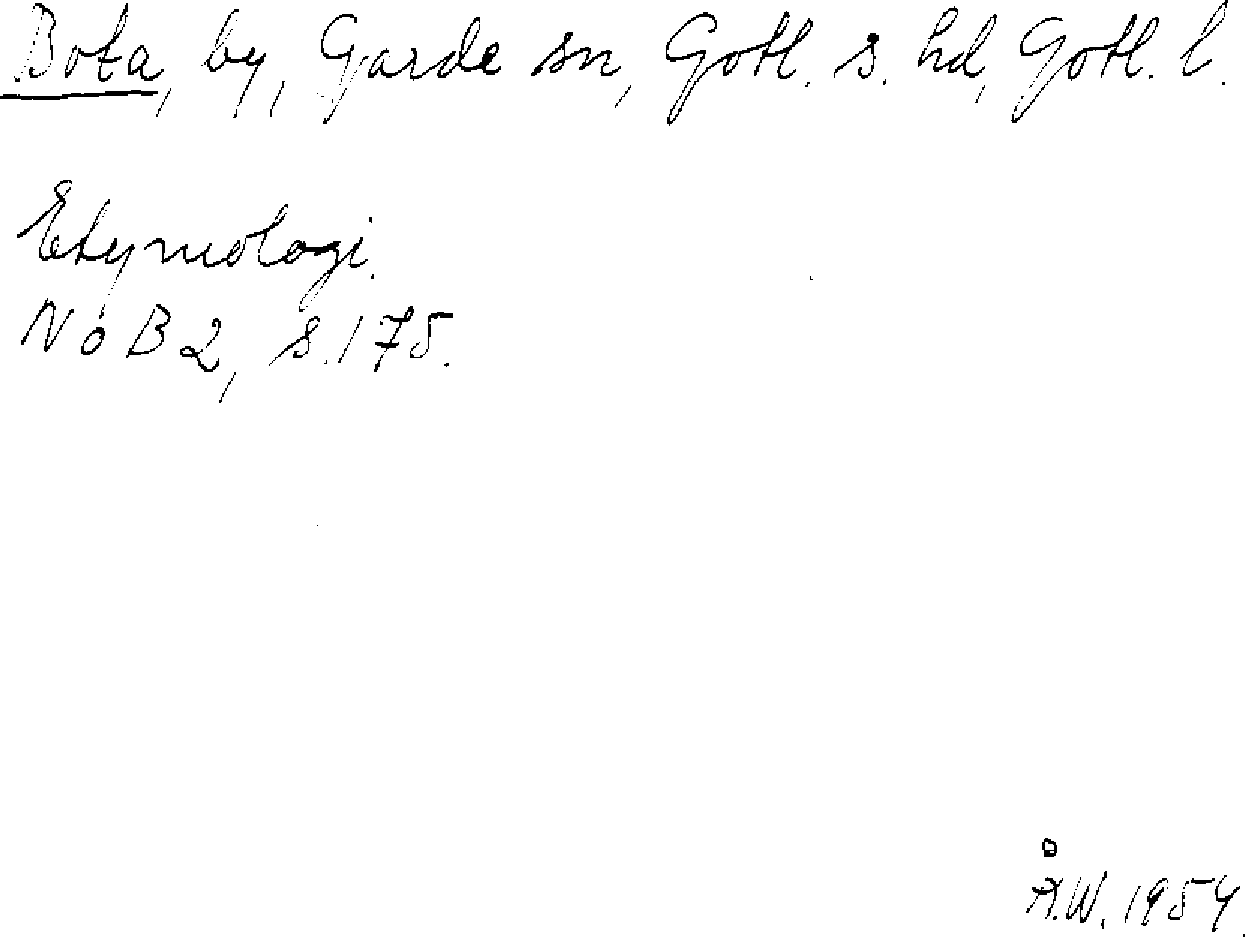 Bota, by, Garde sn, Gotl. s. hd, Gotl. l.
Etymologi.
NoB 2, s. 175.
Å.W. 1954.